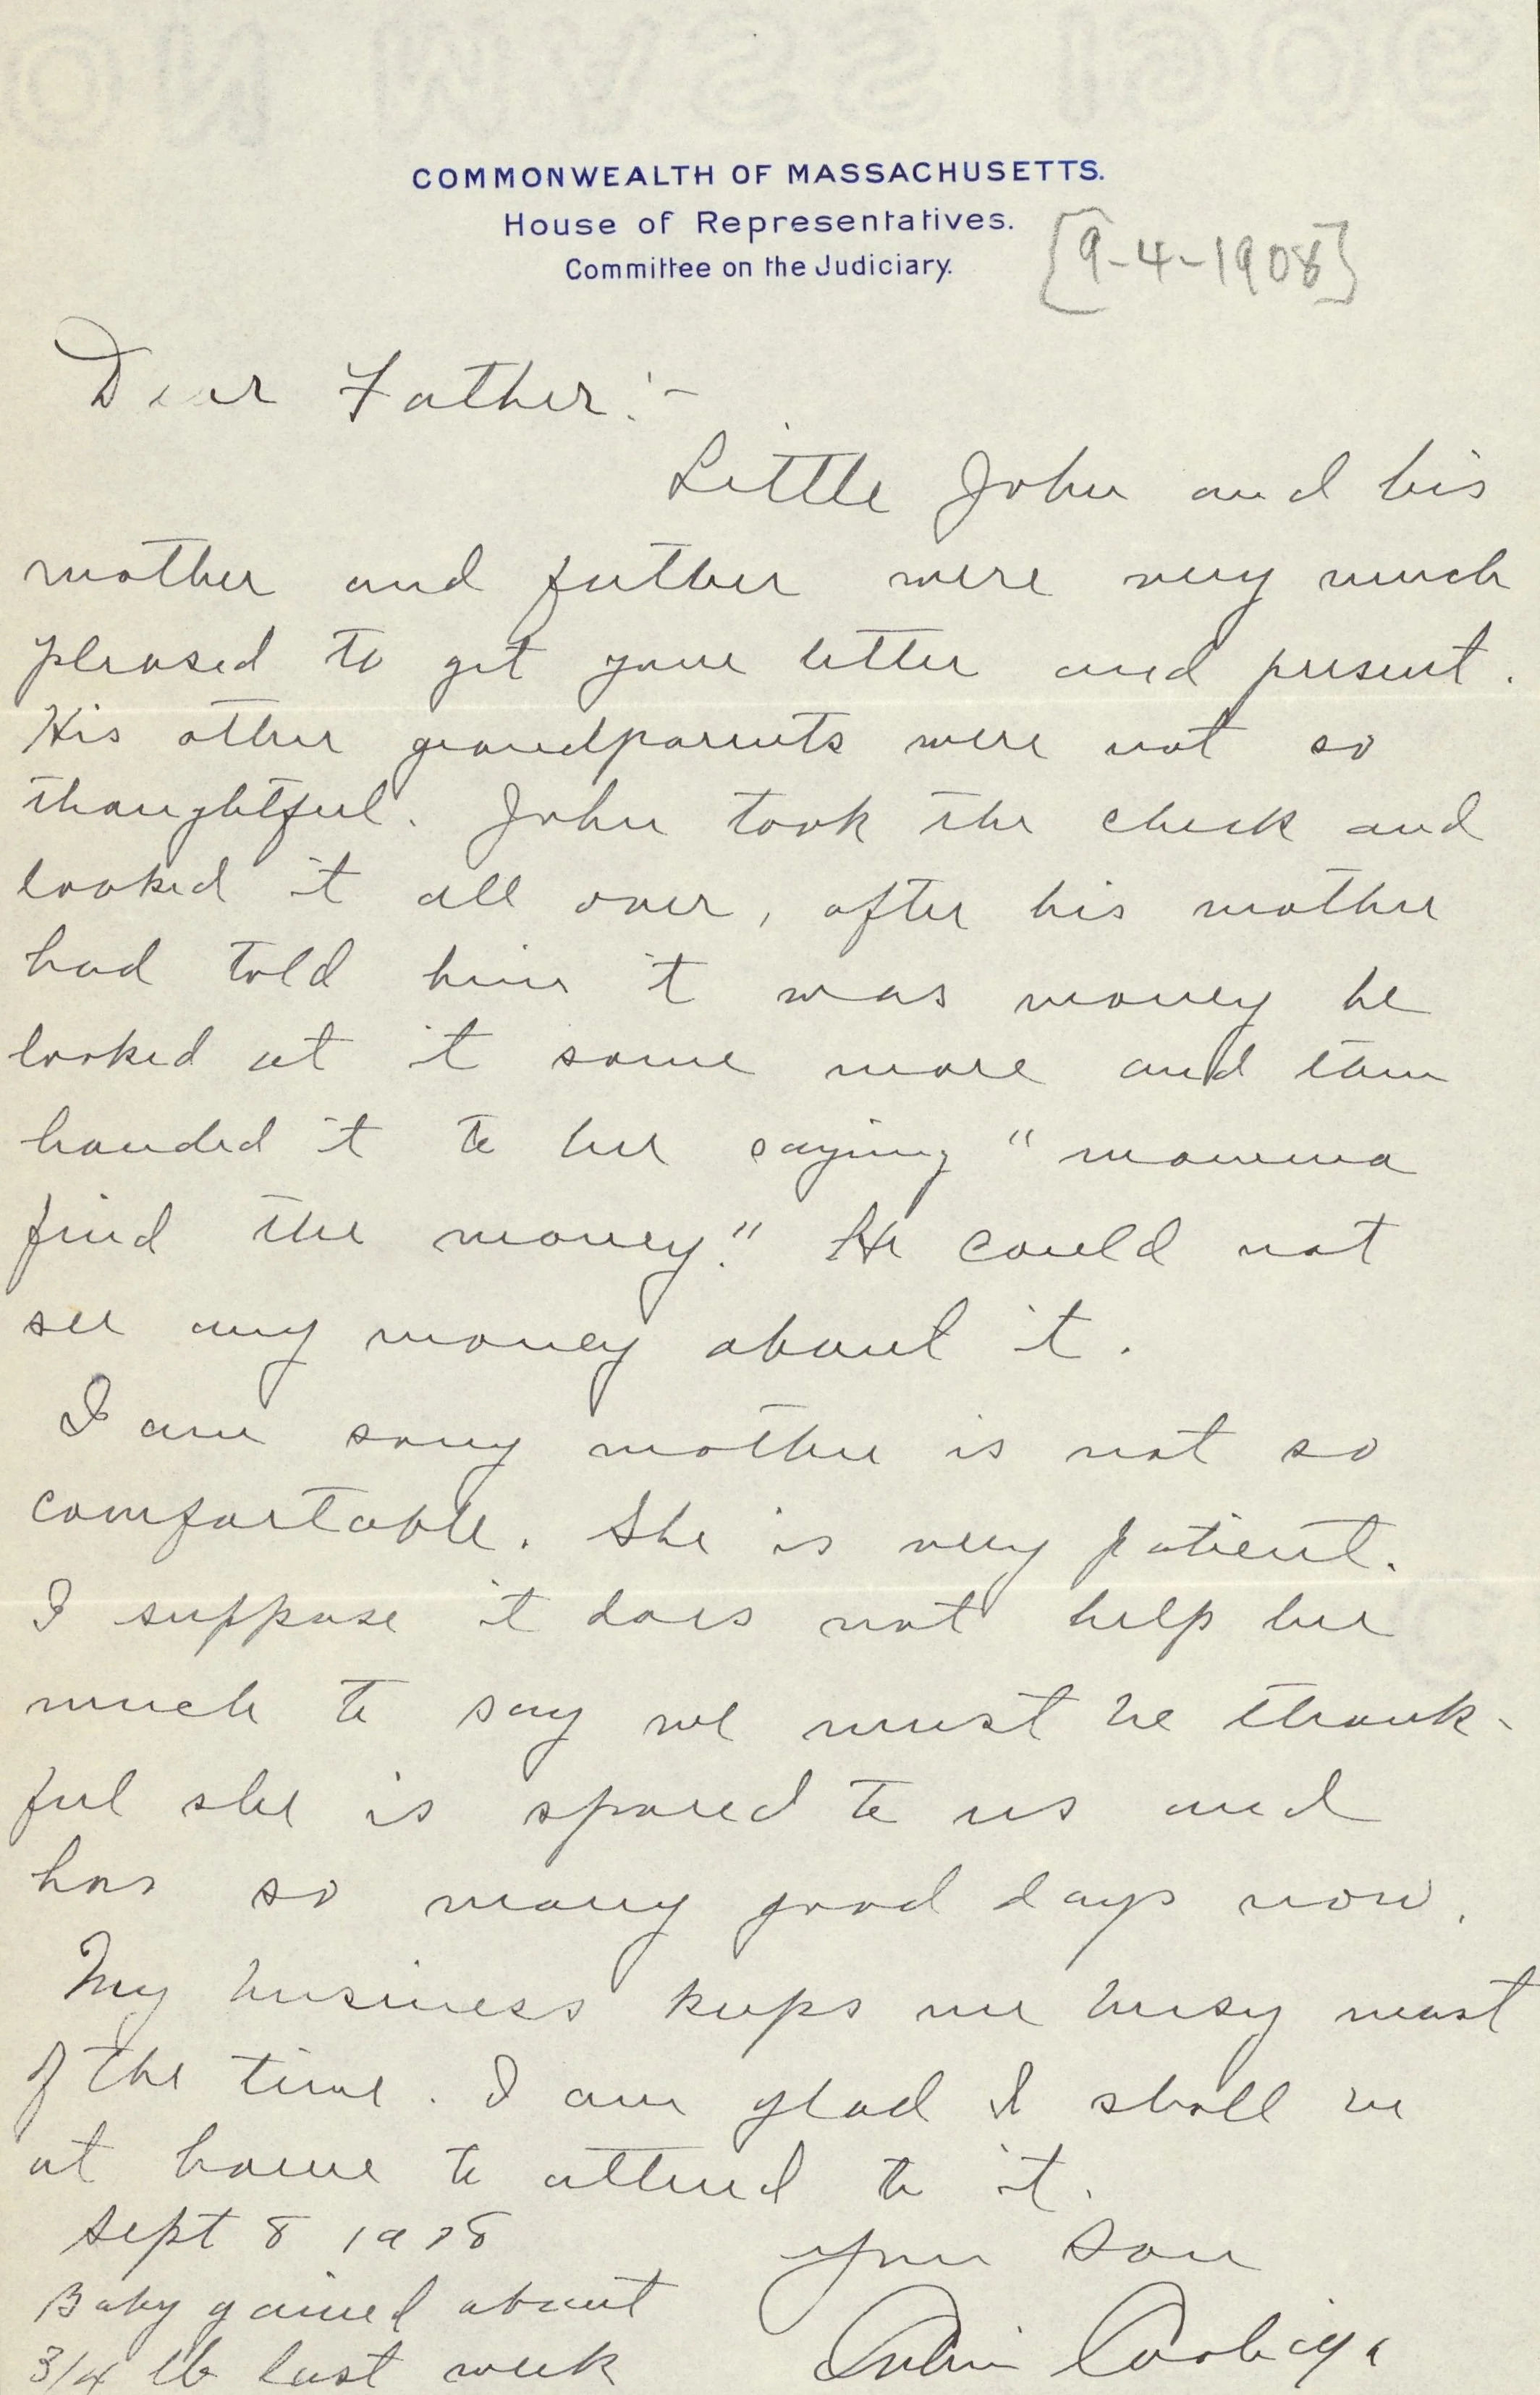 COMMONWEALTH OF MASSACHUSETTS.
House of Representatives.
Committee on the Judiciary.
[9-4-1908]
Dear Father:-
Little John and his
mother and father were very much
pleased to get your letter and present.
His other grandparents were not so
thoughtful. John took the check and
looked it all over, after his mother
had told him it was money he
looked at it some more and then
handed it to her saying "momma
find the money." He could not
see any money about it.
I am sorry mother is not so
comfortable. She is very patient.
I suppose it does not help her
much to say we must be thank-
ful she is spared to us and
has so many good days now.
My business keeps me busy most
of the time. I am glad I shall be
at home to attend to it.
Sept 8 1908
Your son
Baby gained about
3/4 lb last week
Calvin Coolidge